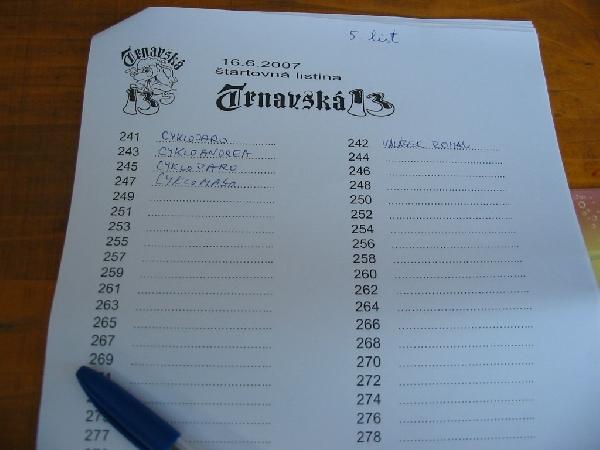 5. list
Trnavská
13
16.6.2007
štartovná listina
Trnavská 13
241 CYKLOJARO 242
243 CYKLOANDREA 244
245 246
247 248
249 250
251 252
253 254
255 256
257 258
259 260
261 262
263 264
265 266
267 268
269 270
272
274
276
277 278